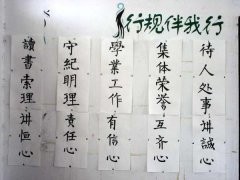 行规伴我行
待人处事讲誠心
集体荣誉互齐心
學業工作有信心
守紀明理責任心
讀書索理讲恒心